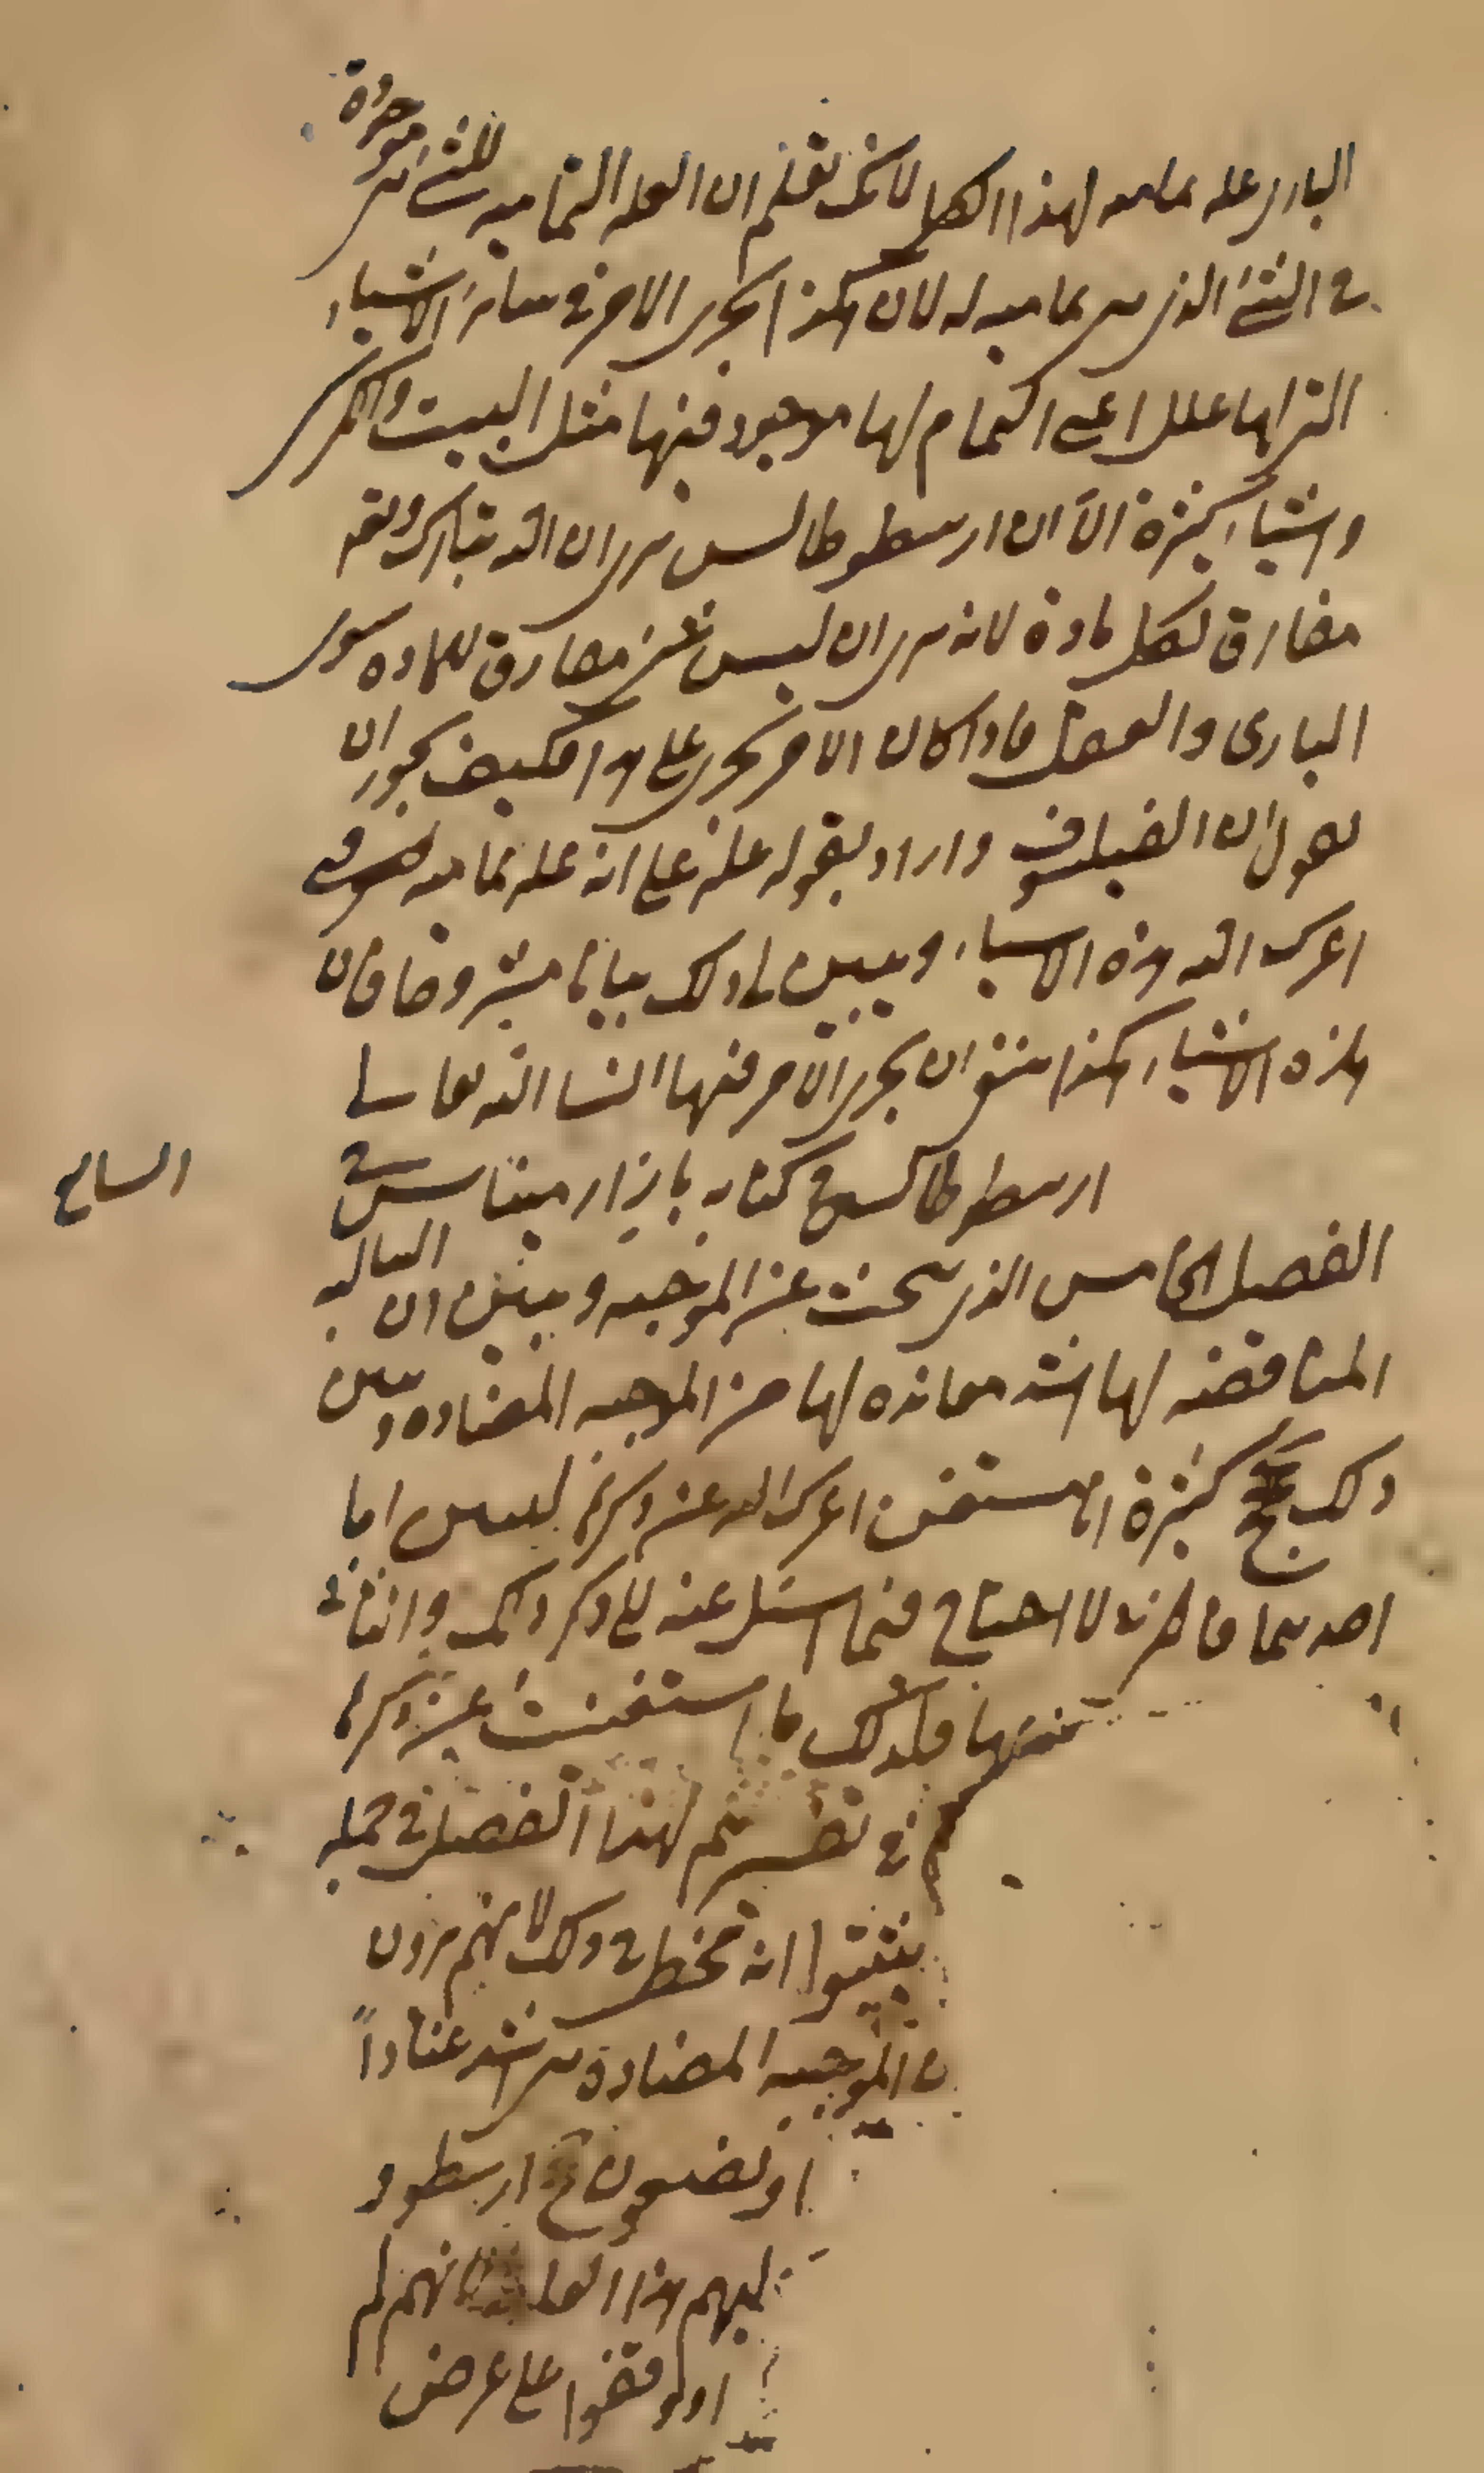 الباري عله تماميه لهذا الكل لانك تعلم ان العله التماميه للشئ هي موجودة
في الشئ الذي هي تماميه له لان هكذا يجري الامر في سائر الاشياء
التي لها علل اعني التمام لها موجود فيها مثل البيت والكرسي
واشياء كثيرة الا ان ارسطوطالس يرى ان الله تبارك وتعا
مفارق لكل مادة لانه يرى ان ليس شئ مفارق للماده سوى
الباري والعقل فاذا كان الامر يجري على هذا فكيف يجوز ان
يقول ان الفيلسوف اراد بقوله علة على انه عله تماميه
اعزك الله هذه الاشياء وتبين لي ذلك بيانا مشروحا فان
هذه الاشياء هكذا ينبغي ان يجري الامر فيها انشا الله تعالى
السابع
ارسطوطالس في كتابه باريرارمينياس في
الفصل الخامس الذي يبحث عن الموجبه ويبين ان السالبه
المناقضه لها اشد معانده لها من الموجبه المضاده ويبين
ذلك بحجج كثيرة انا مستغن اعزك الله عن ذكرها ليس اما
احديهما فلاني لا احتاج فيما اسئل عنه الى ذكر ذلك والثاني
فلذلك ما استغنيت عن ذكرها
في تفسيرهم لهذا الفصل في جمله
يثبتوا انه مخطي في ذلك لانهم يرون
ان الموجبه المضادة هي اشد عنادا
او يضعون ارسطو و
هذا لانهم لم
او لو وقفوا على غرض